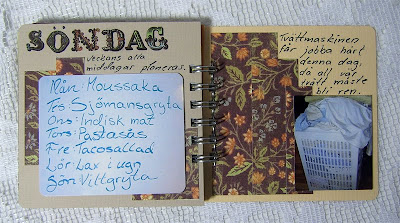 SÖNDAG
veckans alla
middagar planeras.
Mån: Moussaka
Tis: Sjömansgryta
Ons: Indisk mat
Tors: Pastasås
Fre: Tacosallad
Lör: Lax i ugn
Sön: Viltgryta
Tvättmaskinen
får jobba hårt
denna dag,
då all vår
tvätt måste
bli ren.